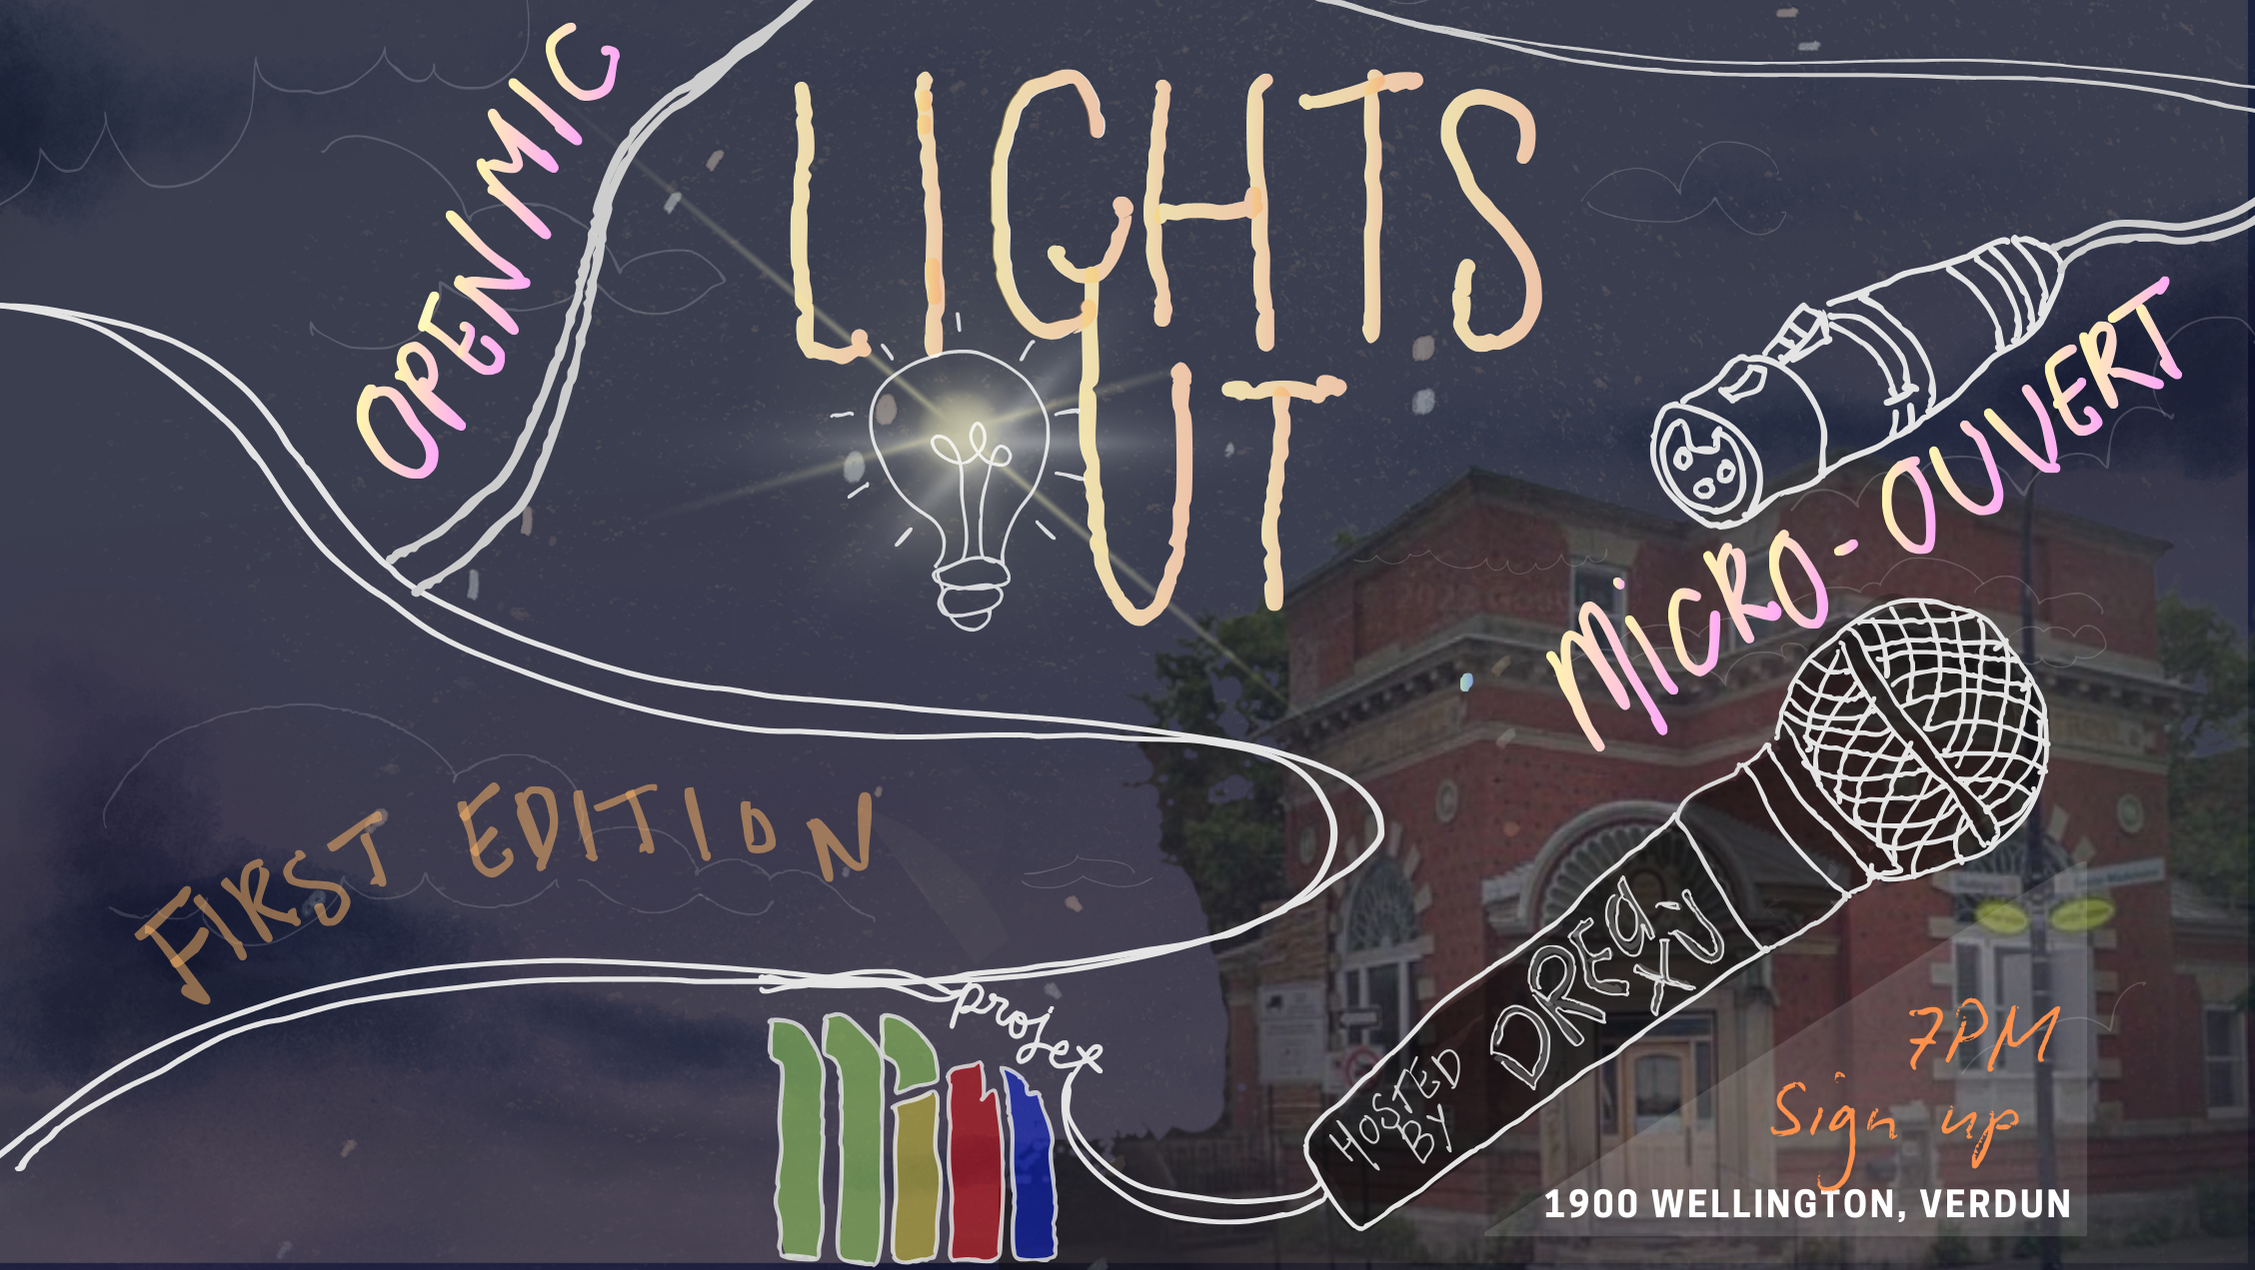 OPEN MIC
LIGHTS
OUT
MiCRO-OUVERT
FIRST EDITION
projex
HOSTED
BY
DREa-
XU
7PM
Sign up
1900 WELLINGTON, VERDUN